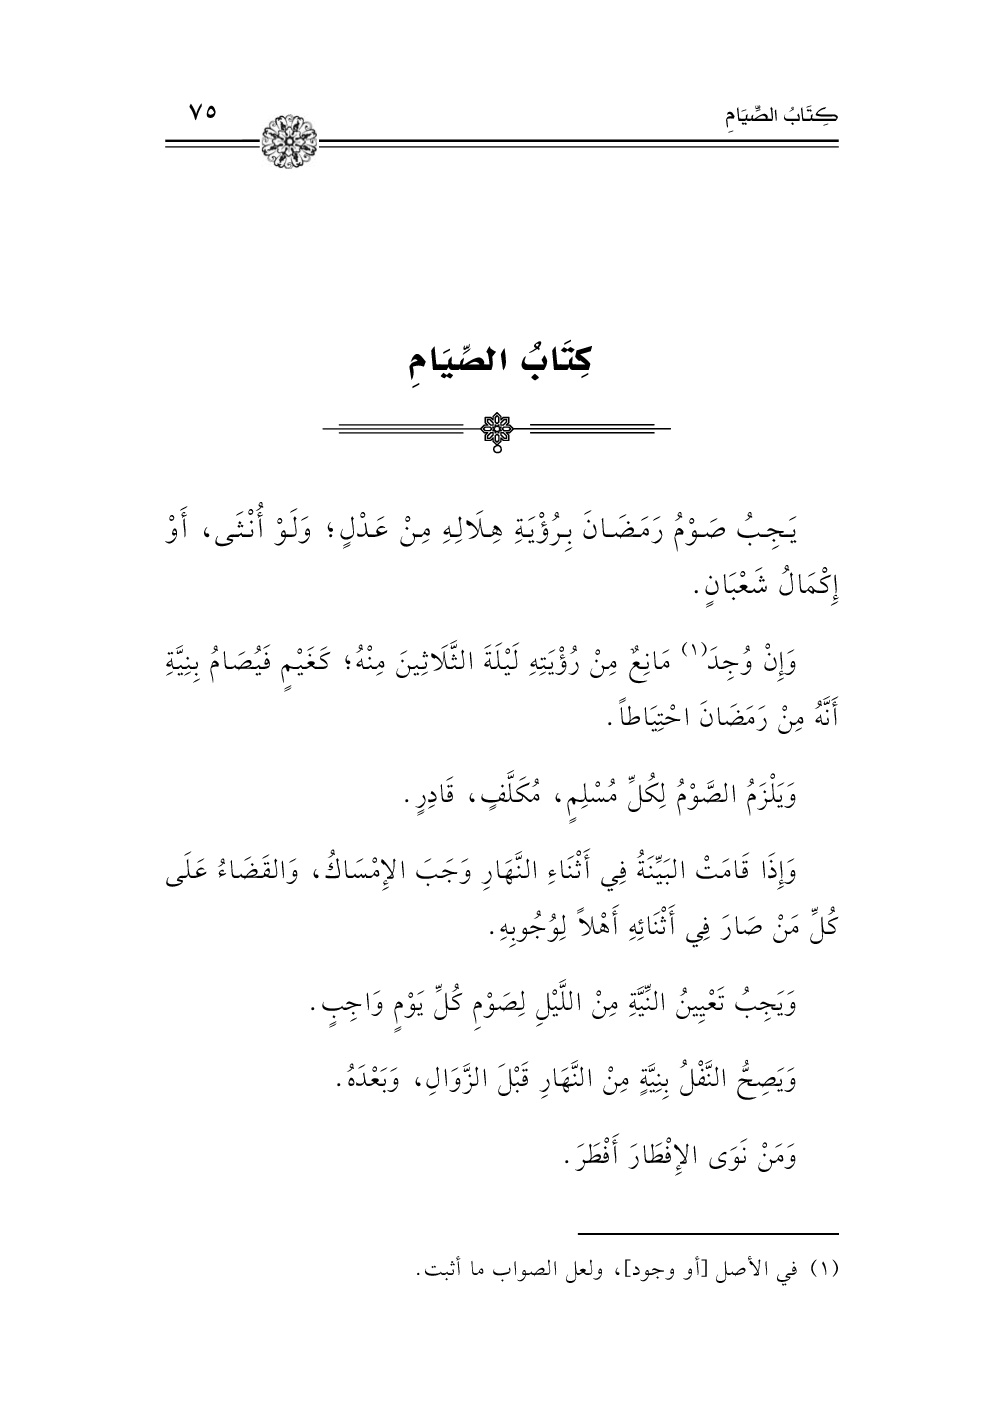 كِتَابُ الصِّيَامِ ٧٥
كِتَابُ الصِّيَامِ
يَجِبُ صَوْمُ رَمَضَانَ بِرُؤْيَةِ هِلَالِهِ مِنْ عَدْلٍ؛ وَلَوْ أُنْثَى، أَوْ
إِكْمَالُ شَعْبَانٍ.
وَإِنْ وُجِدَ(١) مَانِعٌ مِنْ رُؤْيَتِهِ لَيْلَةَ الثَّلَاثِينَ مِنْهُ؛ كَغَيْمٍ فَيُصَامُ بِنِيَّةِ
أَنَّهُ مِنْ رَمَضَانَ احْتِيَاطاً.
وَيَلْزَمُ الصَّوْمُ لِكُلِّ مُسْلِمٍ، مُكَلَّفٍ، قَادِرٍ.
وَإِذَا قَامَتْ البَيِّنَةُ فِي أَثْنَاءِ النَّهَارِ وَجَبَ الإِمْسَاكُ، وَالقَضَاءُ عَلَى
كُلِّ مَنْ صَارَ فِي أَثْنَائِهِ أَهْلاً لِوُجُوبِهِ.
وَيَجِبُ تَعْيِينُ النِّيَّةِ مِنْ اللَّيْلِ لِصَوْمِ كُلِّ يَوْمٍ وَاجِبٍ.
وَيَصِحُّ النَّفْلُ بِنِيَّةٍ مِنْ النَّهَارِ قَبْلَ الزَّوَالِ، وَبَعْدَهُ.
وَمَنْ نَوَى الإِفْطَارَ أَفْطَرَ.
(١) في الأصل [أو وجود]، ولعل الصواب ما أثبت.